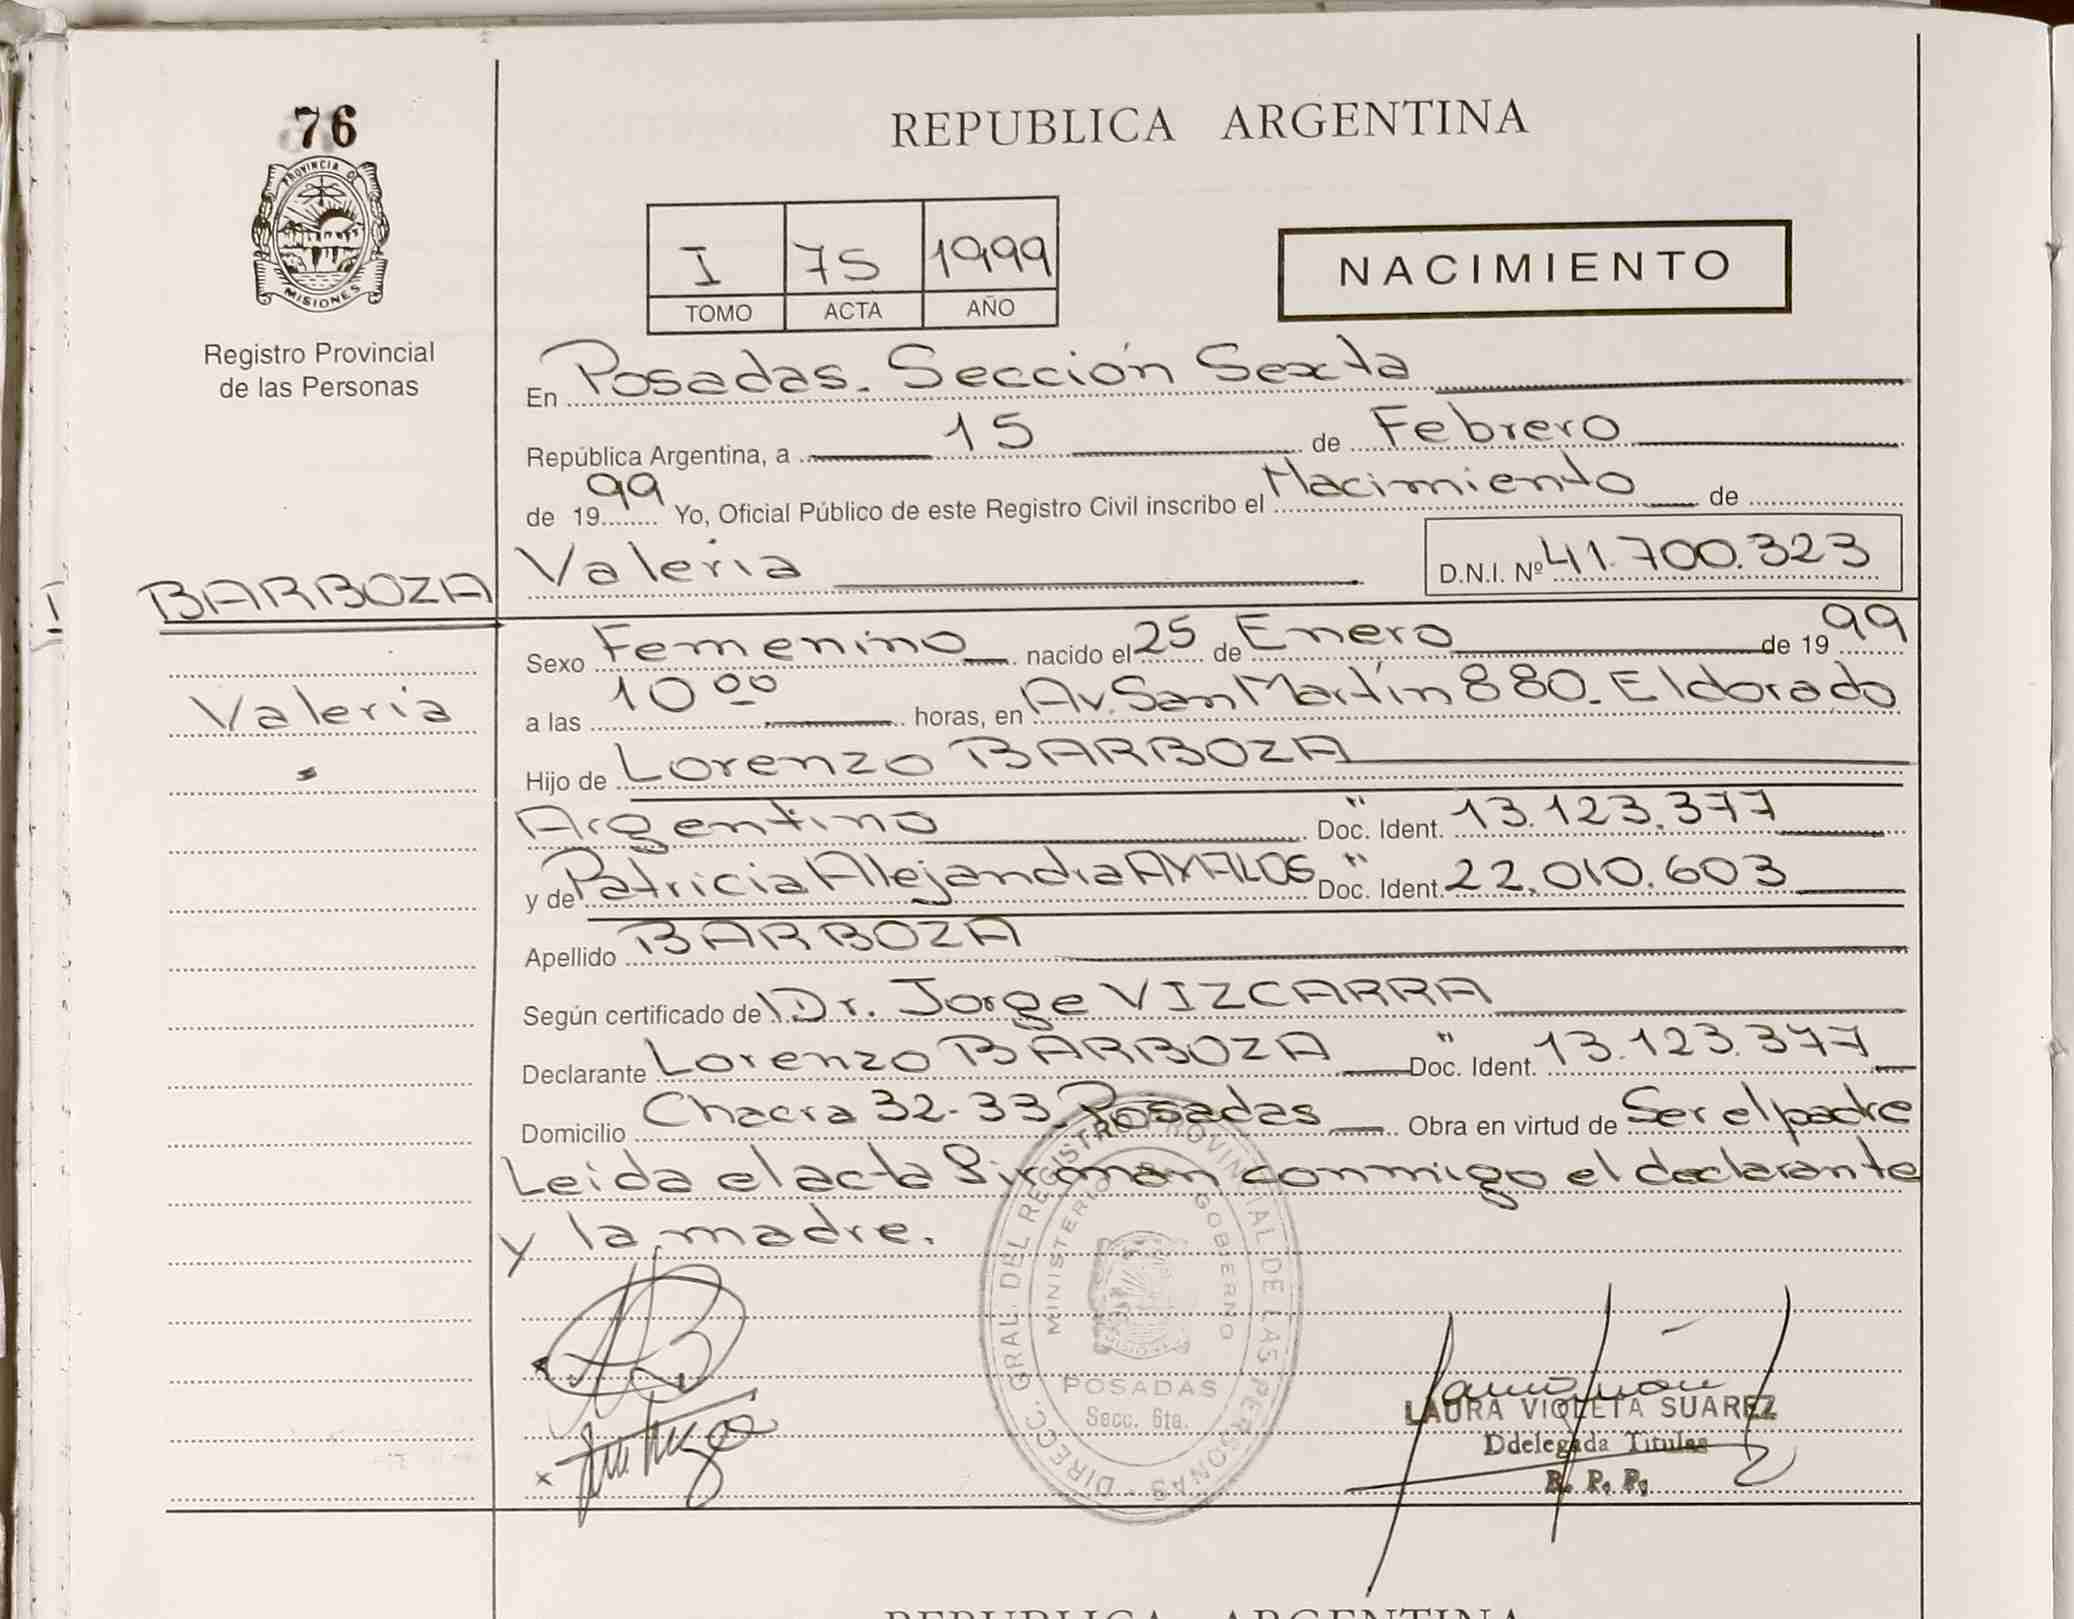 76
PROVINCIA DE
MISIONES
Registro Provincial
de las Personas
REPUBLICA ARGENTINA
I 75 1999
TOMO ACTA AÑO
NACIMIENTO
En Posadas. Sección Sexta
República Argentina, a 15 de Febrero
de 1999 Yo, Oficial Público de este Registro Civil inscribo el Nacimiento de
I BARBOZA Valeria D.N.I. Nº 41.700.323
Sexo Femenino nacido el 25 de Enero de 1999
Valeria
a las 10 00 horas, en Av. San Martín 880. Eldorado
Hijo de Lorenzo BARBOZA
Argentino Doc. Ident. " 13.123.377
y de Patricia Alejandra Doc. Ident. " 22.010.603
Apellido BARBOZA
Según certificado de Dr. Jorge VIZCARRA
Declarante Lorenzo BARBOZA Doc. Ident. " 13.123.377
Domicilio Chacra 32-33. Posadas Obra en virtud de Ser el padre
Leida el acta firman conmigo el declarante
y la madre.
DIRECC. GRAL. DEL REGISTRO PROVINCIAL DE LAS PERSONAS
MINISTERIO DE GOBIERNO
POSADAS
Secc. 6ta.
LAURA VIOLETA SUAREZ
Ddelegada Titular
R. P. P.
REPUBLICA ARGENTINA